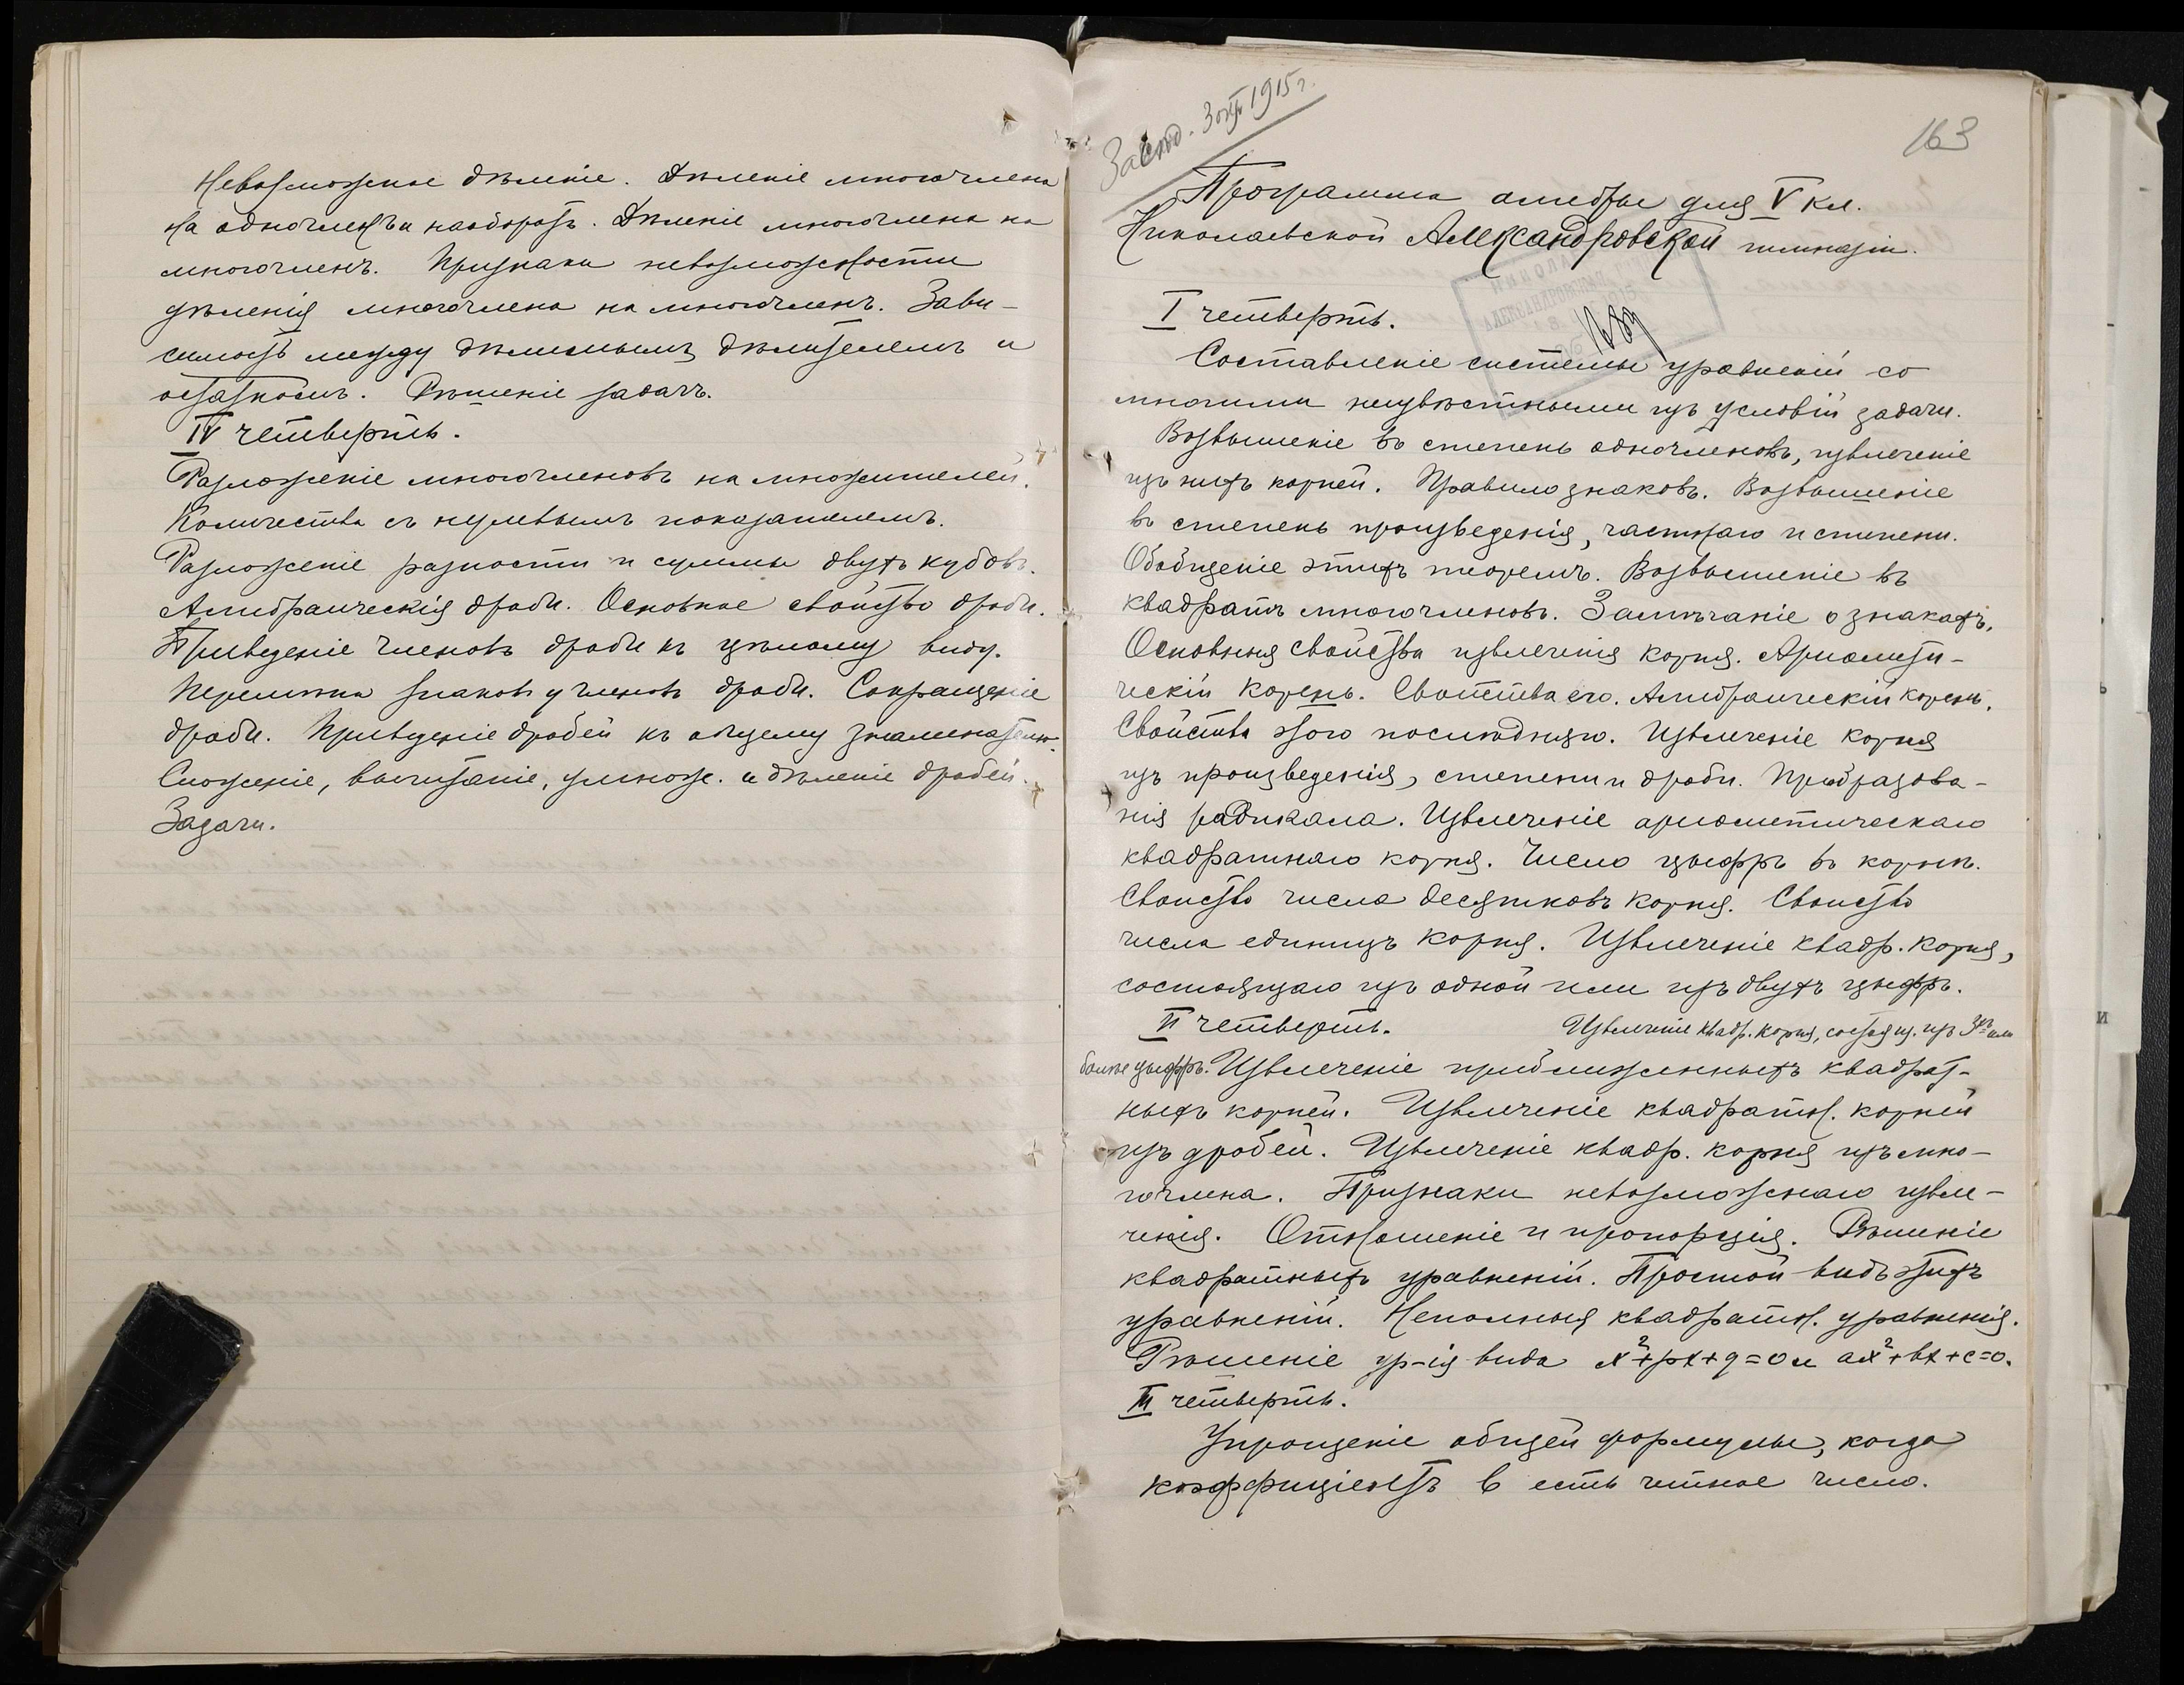 Невозможное дѣленіе. Дѣленіе многочлена
на одночленъ и наоборотъ. Дѣленіе многочлена на
многочленъ. Признаки невозможности
дѣленія многочлена на многочленъ. Зави-
симость между дѣлимымъ дѣлителемъ и
остаткомъ. Рѣшеніе задачъ.
IV четверть.
Разложеніе многочленовъ на множителей.
Количества съ нулевымъ показателемъ.
Разложеніе разности и суммы двухъ кубовъ.
Алгебраическія дроби. Основное свойство дроби.
Приведеніе членовъ дроби къ цѣлому виду.
Перемѣна знаковъ у членовъ дроби. Сокращеніе
дроби. Приведеніе дробей къ общему знаменателю.
Сложеніе, вычитаніе, умнож. и дѣленіе дробей.
Задачи.
3 окт. 1915 г.
163
Программа алгебры для V кл.
Николаевской Александровской гимназіи.
I четверть.
Составленіе системы уравненій со
многими неизвѣстными изъ условій задачи.
Возвышеніе въ степень одночленовъ, извлеченіе
изъ нихъ корней. Правило знаковъ. Возвышеніе
въ степень произведенія, частнаго и степени.
Обобщеніе этихъ теоремъ. Возвышеніе въ
квадратъ многочленовъ. Замѣчаніе о знакахъ.
Основныя свойства извлеченія корня. Ариѳмети-
ческій корень. Свойства его. Алгебраическій корень.
Свойства этого послѣдняго. Извлеченіе корня
изъ произведенія, степени и дроби. Преобразова-
нія радикала. Извлеченіе ариѳметическаго
квадратнаго корня. Число цыфръ въ корнѣ.
Свойство числа десятковъ корня. Свойство
числа единицъ корня. Извлеченіе квадр. корня,
состоящаго изъ одной или изъ двухъ цыфръ.
II четверть. Извлеченіе квадр. корня, состоящ. изъ 3хъ или
болѣе цыфръ. Извлеченіе приближенныхъ квадрат-
ныхъ корней. Извлеченіе квадратн. корней
изъ дробей. Извлеченіе квадр. корня изъ мно-
гочлена. Признаки невозможнаго извле-
ченія. Отношеніе и пропорція. Рѣшеніе
квадратныхъ уравненій. Простой видъ этихъ
уравненій. Неполныя квадратн. уравненія.
Рѣшеніе ур-ія вида x²+px+q=0 и ax²+bx+c=0.
III четверть.
Упрощеніе общей формулы, когда
коэффиціентъ b есть четное число.